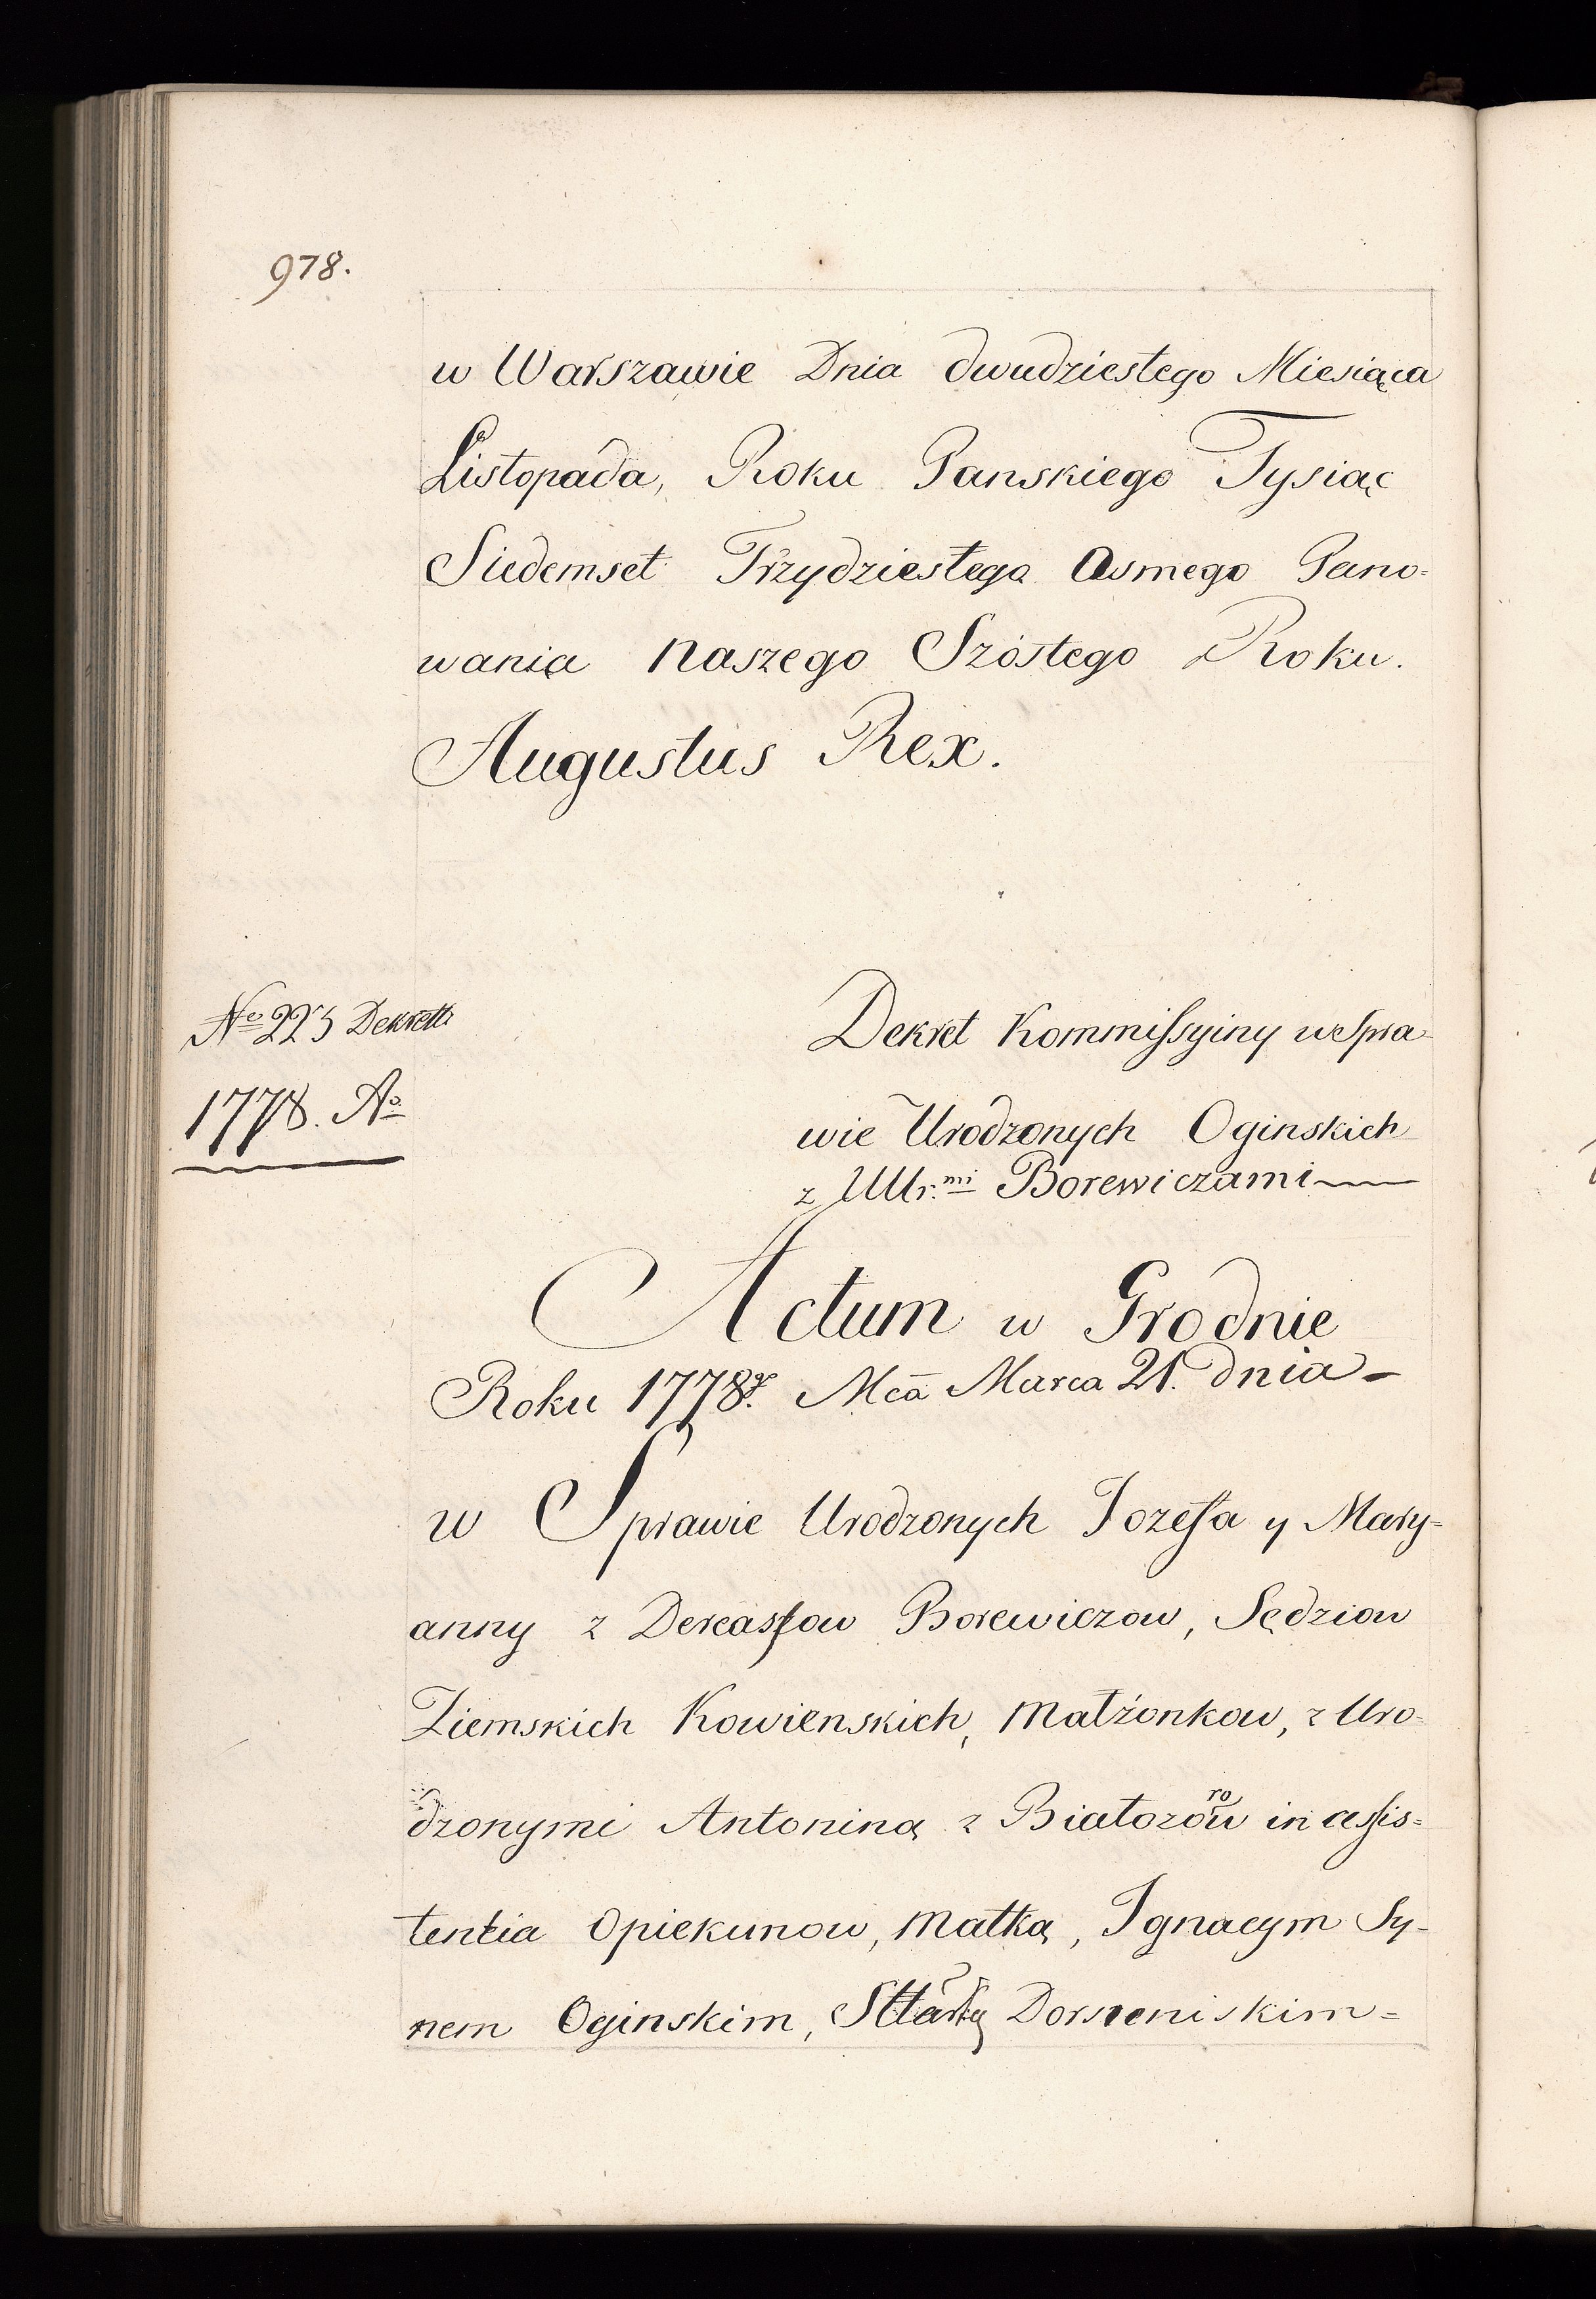 978.
w Warszawie Dnia dwudziestego Miesiąca
Listopada, Roku Panskiego Tysiąc
Siedemset Trzydziestego Osmego Pano=
wania Naszego Szóstego Roku.
Augustus Rex.
No 223 Dekret
1778. Ao
Dekret Kommissyiny w Spra=
wie Urodzonych Oginskich
z UUr:mi Borewiczami
Actum w Grodnie
Roku 1778go Mca Marca 21. dnia
w Sprawie Urodzonych Jozefa y Mary=
anny z Dercassow Borewiczow, Sędziow
Ziemskich Kowienskich, Małżonkow, z Uro=
dzonymi Antoniną z Białozorow in assis=
tentia Opiekunow, Matką, Ignacym Sy=
nem Oginskim, Sttarstą Dorsueniskim=